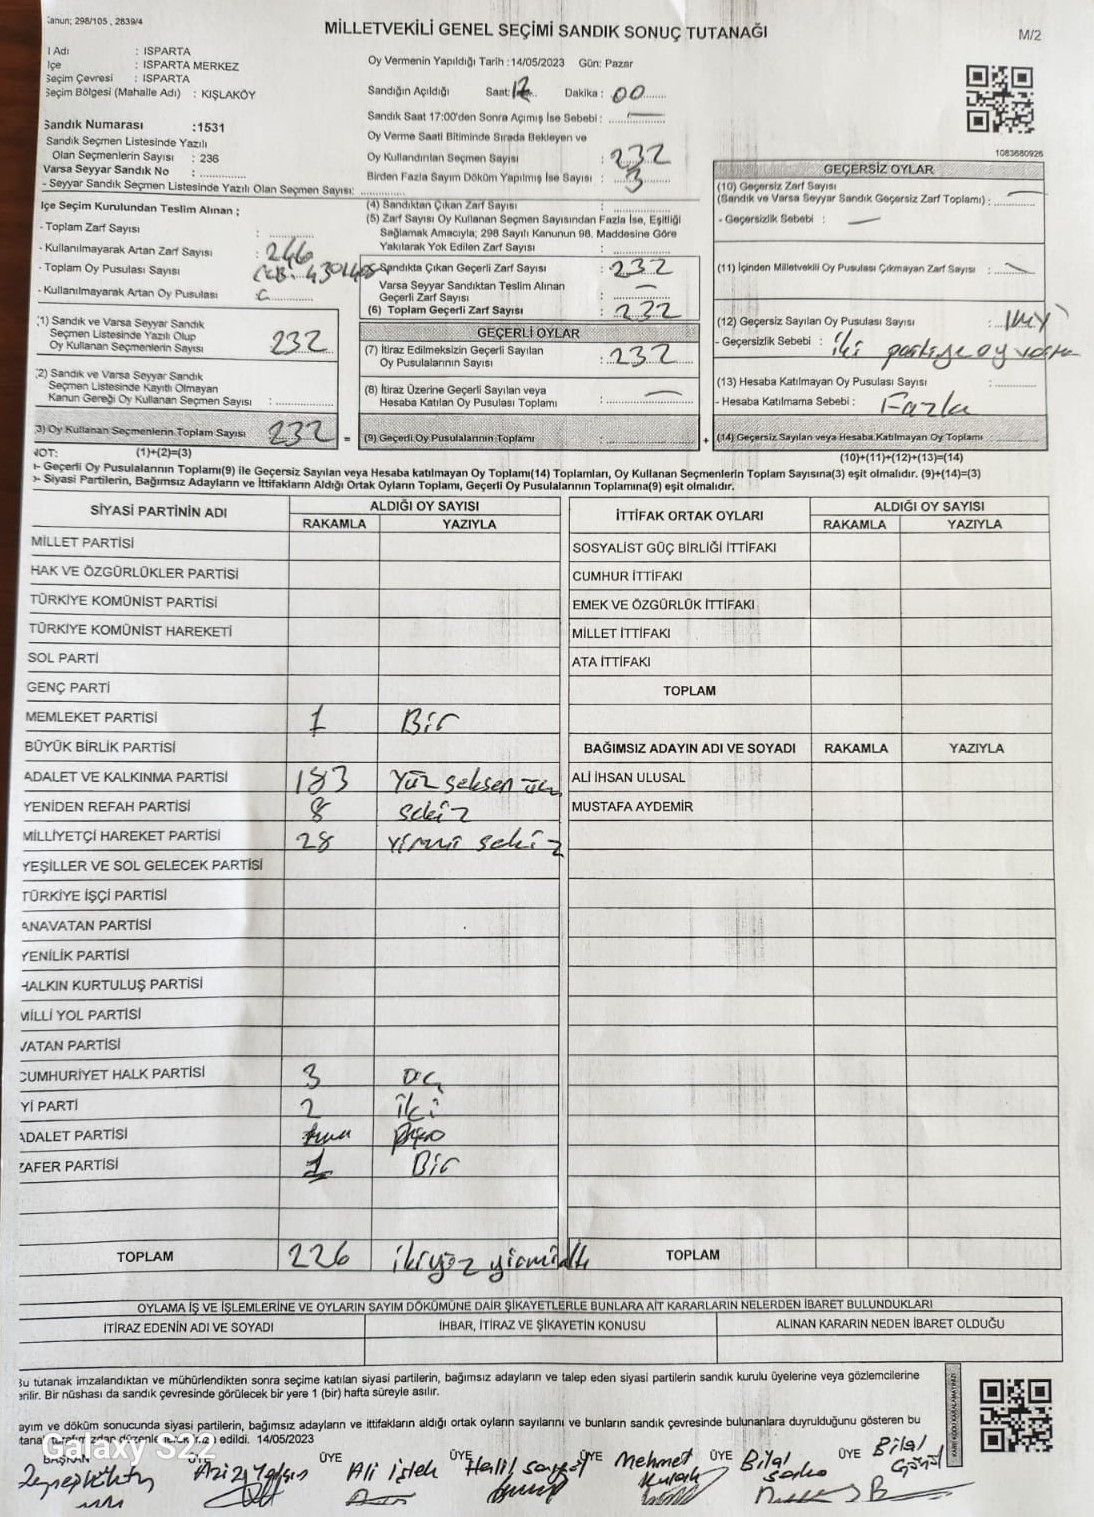 Kanun; 298/105 , 2839/4
MİLLETVEKİLİ GENEL SEÇİMİ SANDIK SONUÇ TUTANAĞI
M/2
İl Adı : ISPARTA
İlçe : ISPARTA MERKEZ
Seçim Çevresi : ISPARTA
Seçim Bölgesi (Mahalle Adı) : KIŞLAKÖY
Sandık Numarası :1531
Sandık Seçmen Listesinde Yazılı
Olan Seçmenlerin Sayısı : 236
Varsa Seyyar Sandık No :
- Seyyar Sandık Seçmen Listesinde Yazılı Olan Seçmen Sayısı:
Oy Vermenin Yapıldığı Tarih :14/05/2023 Gün: Pazar
Sandığın Açıldığı Saat: Dakika : 00
Sandık Saat 17:00'den Sonra Açımış İse Sebebi : —
Oy Verme Saati Bitiminde Sırada Bekleyen ve
Oy Kullandırılan Seçmen Sayısı : 232
Birden Fazla Sayım Döküm Yapılmış İse Sayısı : 3
1083680926
İlçe Seçim Kurulundan Teslim Alınan ;
- Toplam Zarf Sayısı :
- Kullanılmayarak Artan Zarf Sayısı : 246
- Toplam Oy Pusulası Sayısı
- Kullanılmayarak Artan Oy Pusulası :
(1) Sandık ve Varsa Seyyar Sandık
Seçmen Listesinde Yazılı Olup
Oy Kullanan Seçmenlerin Sayısı 232
(2) Sandık ve Varsa Seyyar Sandık
Seçmen Listesinde Kayıtlı Olmayan
Kanun Gereği Oy Kullanan Seçmen Sayısı :
3) Oy Kullanan Seçmenlerin Toplam Sayısı 232 =
(4) Sandıktan Çıkan Zarf Sayısı :
(5) Zarf Sayısı Oy Kullanan Seçmen Sayısından Fazla İse, Eşitliği
Sağlamak Amacıyla; 298 Sayılı Kanunun 98. Maddesine Göre
Yakılarak Yok Edilen Zarf Sayısı :
Sandıkta Çıkan Geçerli Zarf Sayısı : 232
Varsa Seyyar Sandıktan Teslim Alınan
Geçerli Zarf Sayısı : —
(6) Toplam Geçerli Zarf Sayısı : 232
GEÇERLİ OYLAR
(7) İtiraz Edilmeksizin Geçerli Sayılan
Oy Pusulalarının Sayısı : 232
(8) İtiraz Üzerine Geçerli Sayılan veya
Hesaba Katılan Oy Pusulası Toplamı : —
(9) Geçerli Oy Pusulalarının Toplamı : +
GEÇERSİZ OYLAR
(10) Geçersiz Zarf Sayısı
(Sandık ve Varsa Seyyar Sandık Geçersiz Zarf Toplamı) : —
- Geçersizlik Sebebi : —
(11) İçinden Milletvekili Oy Pusulası Çıkmayan Zarf Sayısı : —
(12) Geçersiz Sayılan Oy Pusulası Sayısı :
- Geçersizlik Sebebi : iki partiye oy
(13) Hesaba Katılmayan Oy Pusulası Sayısı :
- Hesaba Katılmama Sebebi : Fazla
(14) Geçersiz Sayılan veya Hesaba Katılmayan Oy Toplamı
NOT: (1)+(2)=(3)
(10)+(11)+(12)+(13)=(14)
- Geçerli Oy Pusulalarının Toplamı(9) ile Geçersiz Sayılan veya Hesaba katılmayan Oy Toplamı(14) Toplamları, Oy Kullanan Seçmenlerin Toplam Sayısına(3) eşit olmalıdır. (9)+(14)=(3)
- Siyasi Partilerin, Bağımsız Adayların ve İttifakların Aldığı Ortak Oyların Toplamı, Geçerli Oy Pusulalarının Toplamına(9) eşit olmalıdır.
SİYASİ PARTİNİN ADI ALDIĞI OY SAYISI
RAKAMLA YAZIYLA
MİLLET PARTİSİ
HAK VE ÖZGÜRLÜKLER PARTİSİ
TÜRKİYE KOMÜNİST PARTİSİ
TÜRKİYE KOMÜNİST HAREKETİ
SOL PARTİ
GENÇ PARTİ
MEMLEKET PARTİSİ 1 Bir
BÜYÜK BİRLİK PARTİSİ
ADALET VE KALKINMA PARTİSİ 183 Yüz seksen üç
YENİDEN REFAH PARTİSİ 8 sekiz
MİLLİYETÇİ HAREKET PARTİSİ 28 yirmi sekiz
YEŞİLLER VE SOL GELECEK PARTİSİ
TÜRKİYE İŞÇİ PARTİSİ
ANAVATAN PARTİSİ
YENİLİK PARTİSİ
HALKIN KURTULUŞ PARTİSİ
MİLLİ YOL PARTİSİ
VATAN PARTİSİ
CUMHURİYET HALK PARTİSİ 3 üç
İYİ PARTİ 2 iki
ADALET PARTİSİ
ZAFER PARTİSİ 1 Bir
TOPLAM 226 ikiyüz yirmialtı
İTTİFAK ORTAK OYLARI ALDIĞI OY SAYISI
RAKAMLA YAZIYLA
SOSYALİST GÜÇ BİRLİĞİ İTTİFAKI
CUMHUR İTTİFAKI
EMEK VE ÖZGÜRLÜK İTTİFAKI
MİLLET İTTİFAKI
ATA İTTİFAKI
TOPLAM
BAĞIMSIZ ADAYIN ADI VE SOYADI RAKAMLA YAZIYLA
ALİ İHSAN ULUSAL
MUSTAFA AYDEMİR
TOPLAM
OYLAMA İŞ VE İŞLEMLERİNE VE OYLARIN SAYIM DÖKÜMÜNE DAİR ŞİKAYETLERLE BUNLARA AİT KARARLARIN NELERDEN İBARET BULUNDUKLARI
İTİRAZ EDENİN ADI VE SOYADI İHBAR, İTİRAZ VE ŞİKAYETİN KONUSU ALINAN KARARIN NEDEN İBARET OLDUĞU
Bu tutanak imzalandıktan ve mühürlendikten sonra seçime katılan siyasi partilerin, bağımsız adayların ve talep eden siyasi partilerin sandık kurulu üyelerine veya gözlemcilerine
verilir. Bir nüshası da sandık çevresinde görülecek bir yere 1 (bir) hafta süreyle asılır.
Sayım ve döküm sonucunda siyasi partilerin, bağımsız adayların ve ittifakların aldığı ortak oyların sayılarını ve bunların sandık çevresinde bulunanlara duyrulduğunu gösteren bu
edildi. 14/05/2023
Galaxy S22
BAŞKAN ÜYE ÜYE ÜYE ÜYE ÜYE ÜYE
Aziz Ali İşlek Halil Mehmet Bilal Bilal